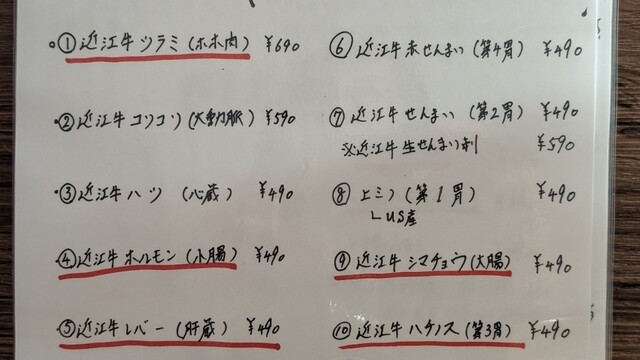 ①近江牛ツラミ(ホホ肉) ¥690
②近江牛コリコリ(大動脈) ¥590
③近江牛ハツ (心蔵) ¥490
④近江牛ホルモン(小腸) ¥490
⑤近江牛レバー(肝蔵) ¥490
⑥近江牛赤せんまい(第4胃) ¥490
⑦近江牛せんまい(第2胃) ¥490
※近江牛生せんまい刺 ¥590
⑧上ミノ(第1胃) ¥490
US産
⑨近江牛シマチョウ(大腸) ¥490
⑩近江牛ハチノス(第3胃) ¥490